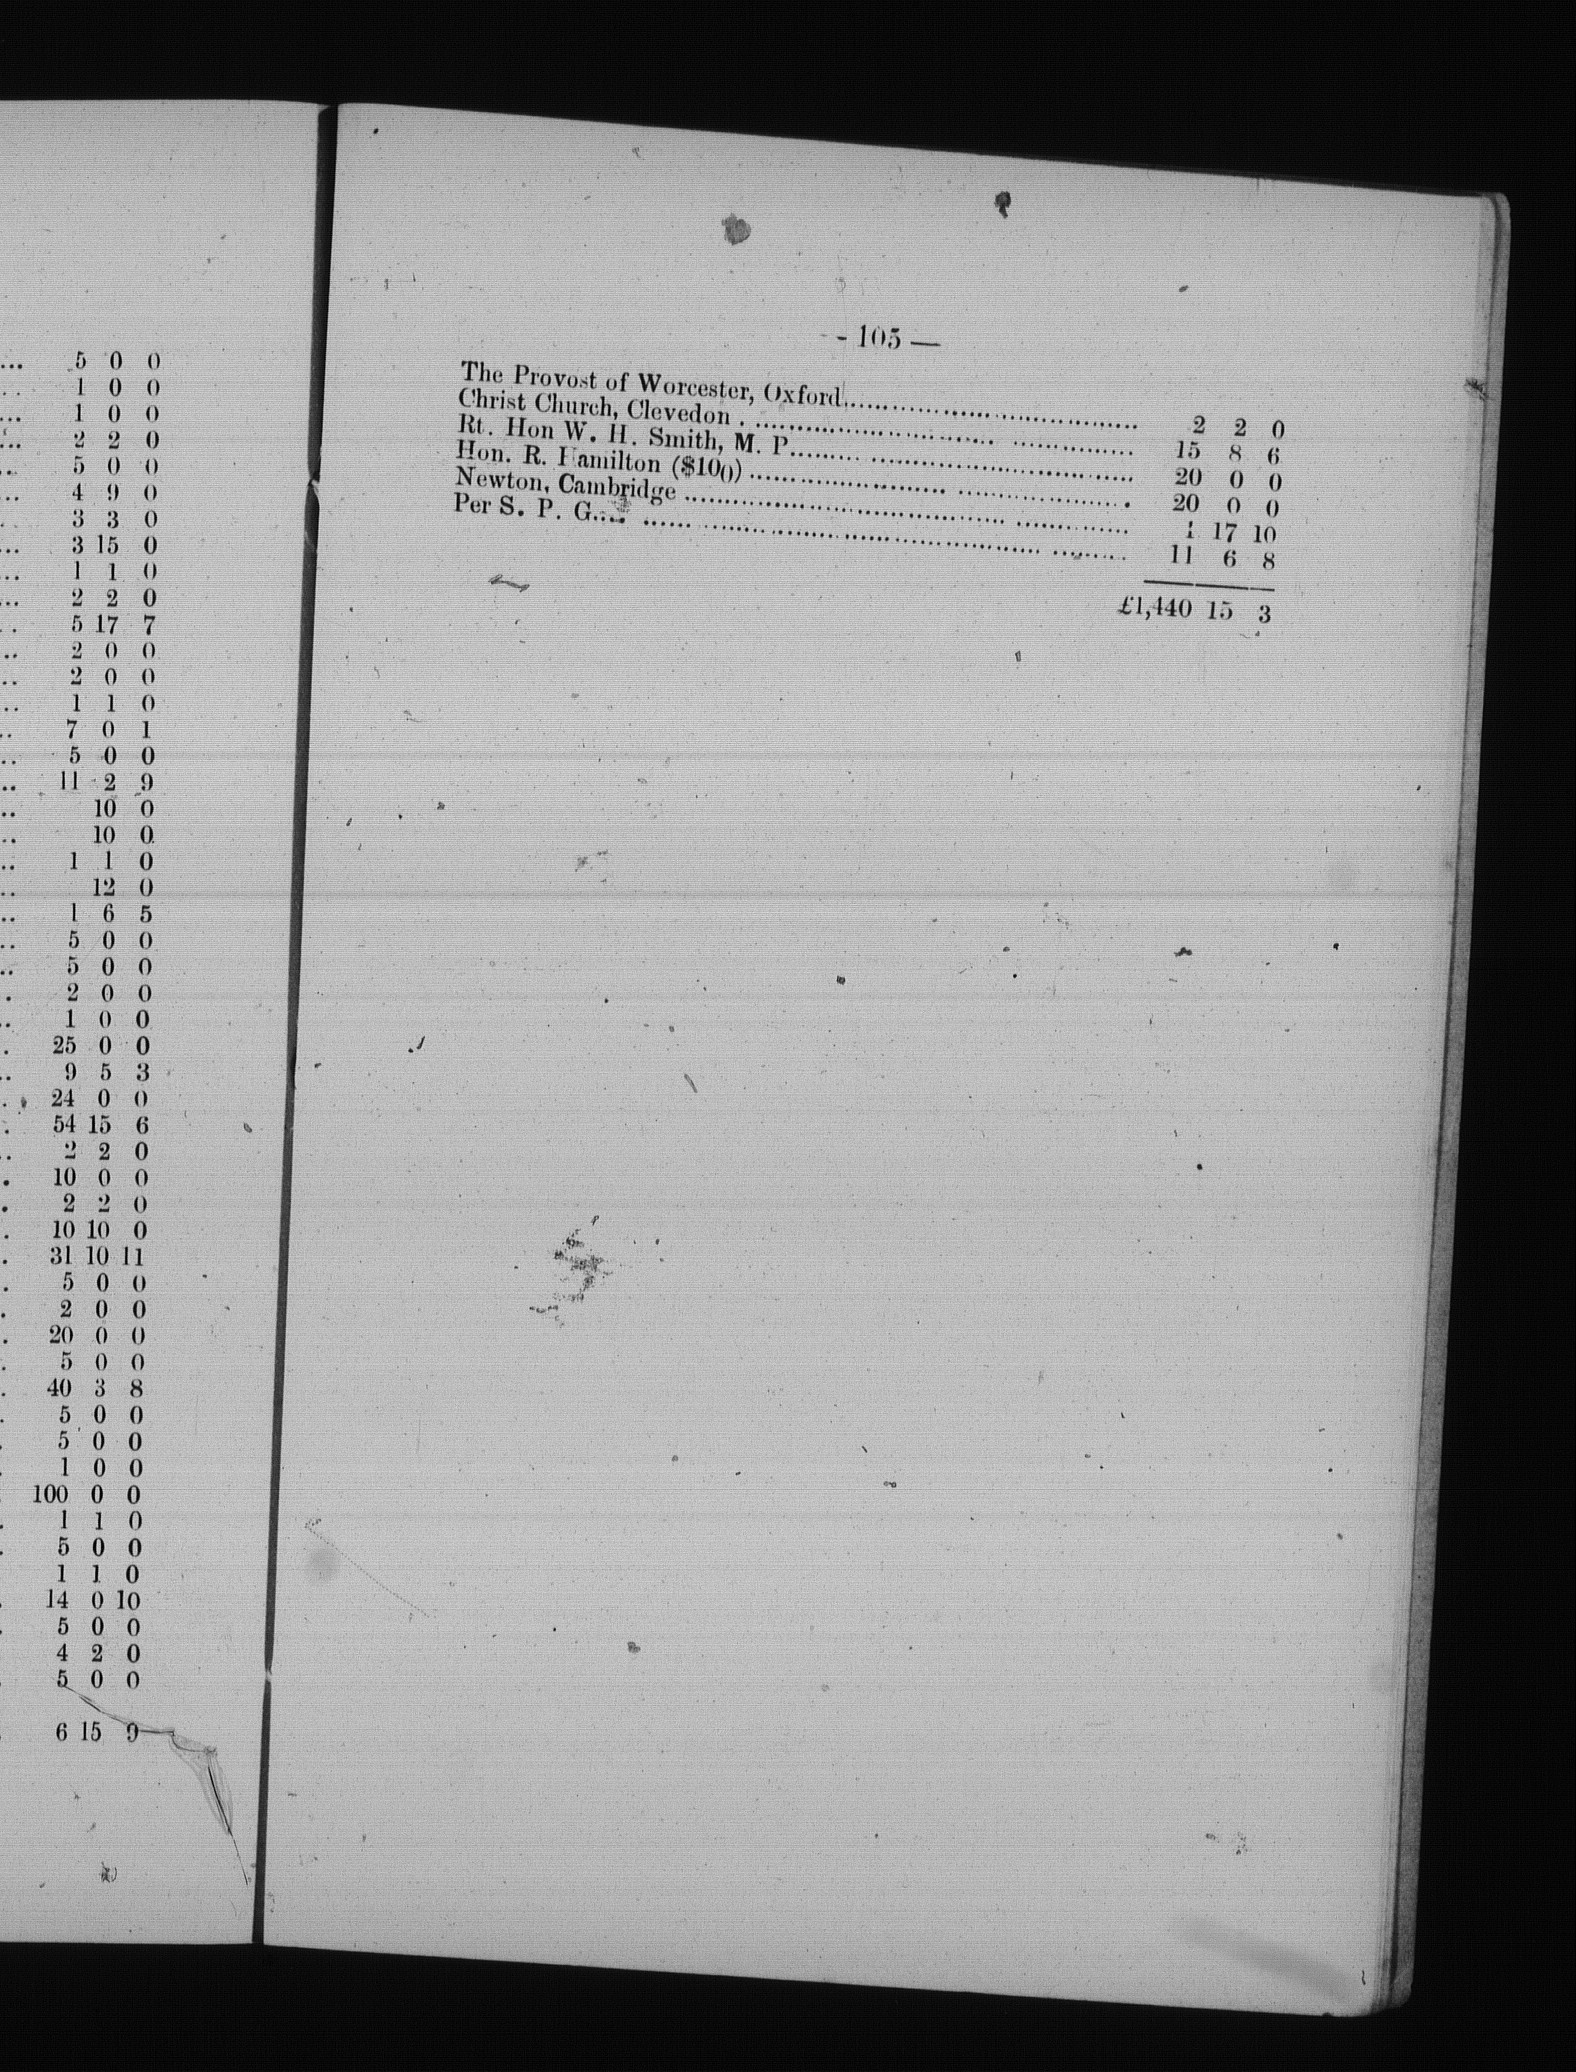 ... 5 0 0
.. 1 0 0
... 1 0 0
... 2 2 0
.. 5 0 0
... 4 9 0
.. 3 3 0
... 3 15 0
... 1 1 0
... 2 2 0
.. 5 17 7
.. 2 0 0
.. 2 0 0
.. 1 1 0
.. 7 0 1
.. 5 0 0
.. 11 2 9
.. 10 0
.. 10 0
.. 1 1 0
.. 12 0
.. 1 6 5
.. 5 0 0
.. 5 0 0
. 2 0 0
.. 1 0 0
. 25 0 0
.. 9 5 3
. 24 0 0
. 54 15 6
.. 2 2 0
. 10 0 0
. 2 2 0
. 10 10 0
. 31 10 11
. 5 0 0
. 2 0 0
. 20 0 0
. 5 0 0
. 40 3 8
. 5 0 0
. 5 0 0
. 1 0 0
. 100 0 0
. 1 1 0
. 5 0 0
1 1 0
. 14 0 10
. 5 0 0
. 4 2 0
. 5 0 0
. 6 15 9
- 105 —
The Provost of Worcester, Oxford........................................ 2 2 0
Christ Church, Clevedon . ........................................ 15 8 6
Rt. Hon W. H. Smith, M. P........................................ 20 0 0
Hon. R. Hamilton ($100) ........................................ 20 0 0
Newton, Cambridge ........................................ 1 17 10
Per S. P. G..... ........................................ 11 6 8
£1,440 15 3